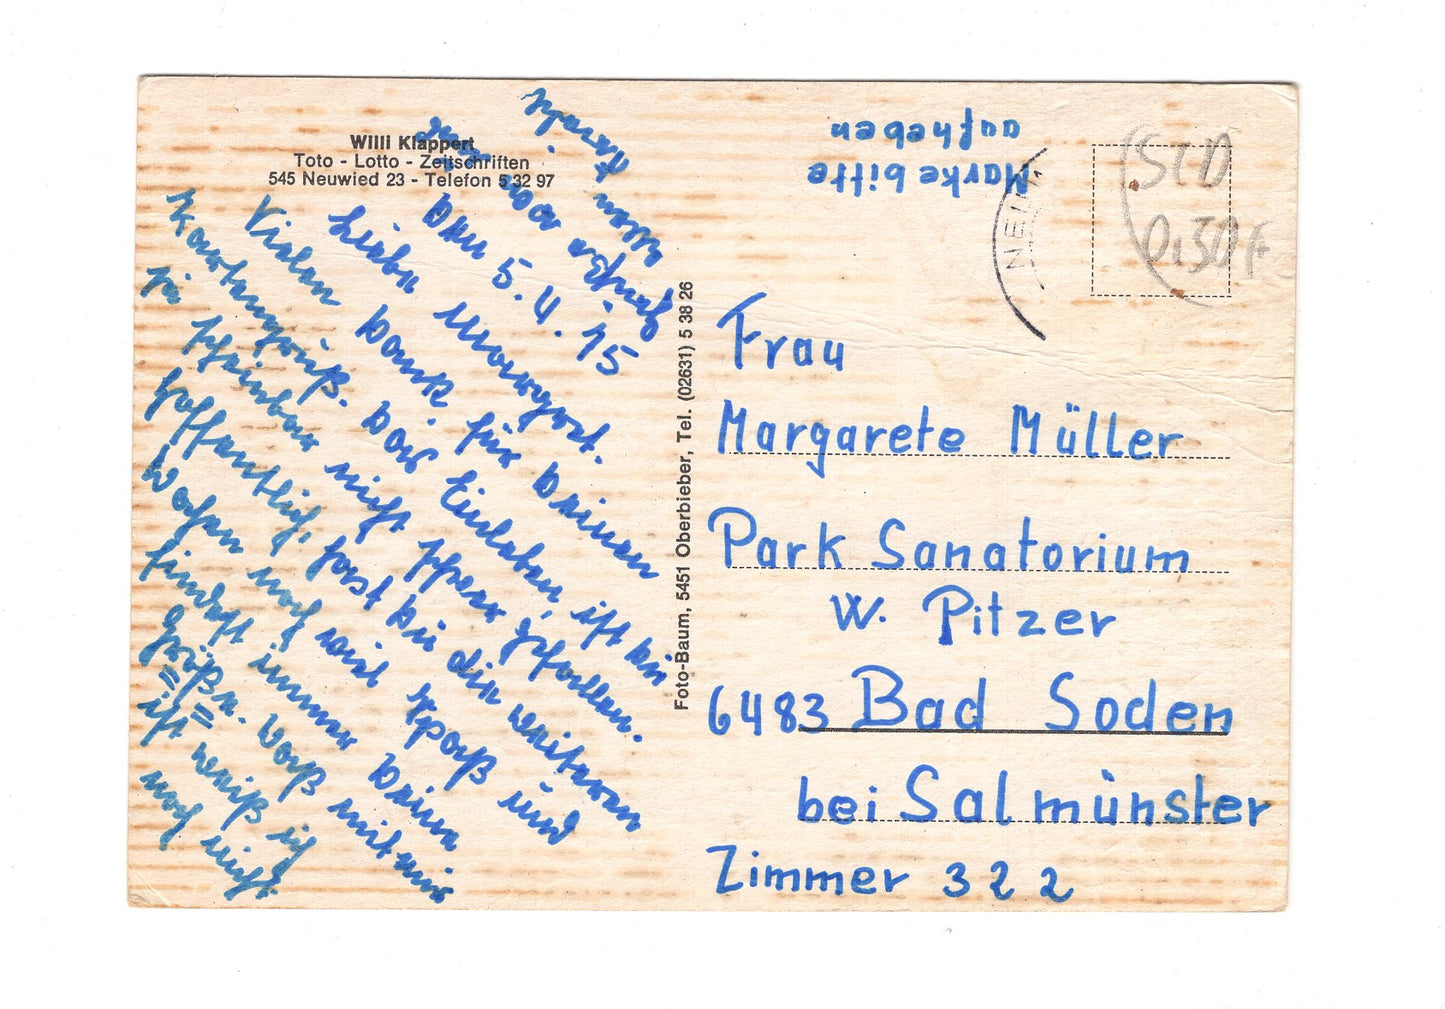 Willi Klappert
Toto - Lotto - Zeitschriften
545 Neuwied 23 - Telefon 5 32 97
den 5.4.75
Liebe Margret.
Vielen Dank für Deinen
Kartengruß. Das Einleben, ist dir
ja scheinbar nicht schwer gefallen.
Hoffentlich, hast Du die weiteren
Wochen noch viel Spaß und
findest immer Deine
Größe. Was mit mir
ist weiß ich
noch nicht.
Foto-Baum, 5451 Oberbieber, Tel. (02631) 5 38 26
Marke bitte
aufheben
NEU
STD
0.30
Frau
Margarete Müller
Park Sanatorium
W. Pitzer
6483 Bad Soden
bei Salmünster
Zimmer 322